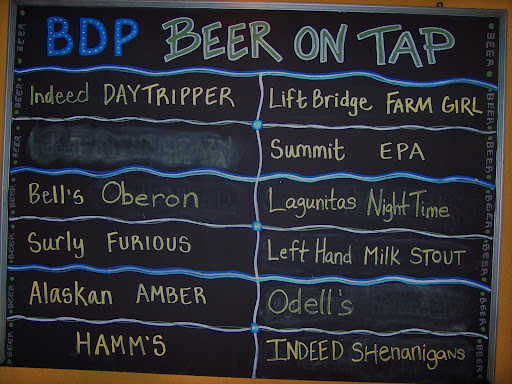 BDP BEER ON TAP
Indeed DAYTRIPPER
Bell's Oberon
Surly FURIOUS
Alaskan AMBER
HAMM'S
Lift Bridge FARM GIRL
Summit EPA
Lagunitas NightTime
Left Hand MILK STOUT
Odell's
INDEED Shenanigans
BEER
BEER
BEER
BEER
BEER
BEER
BEER
BEER
BEER
BEER
BEER